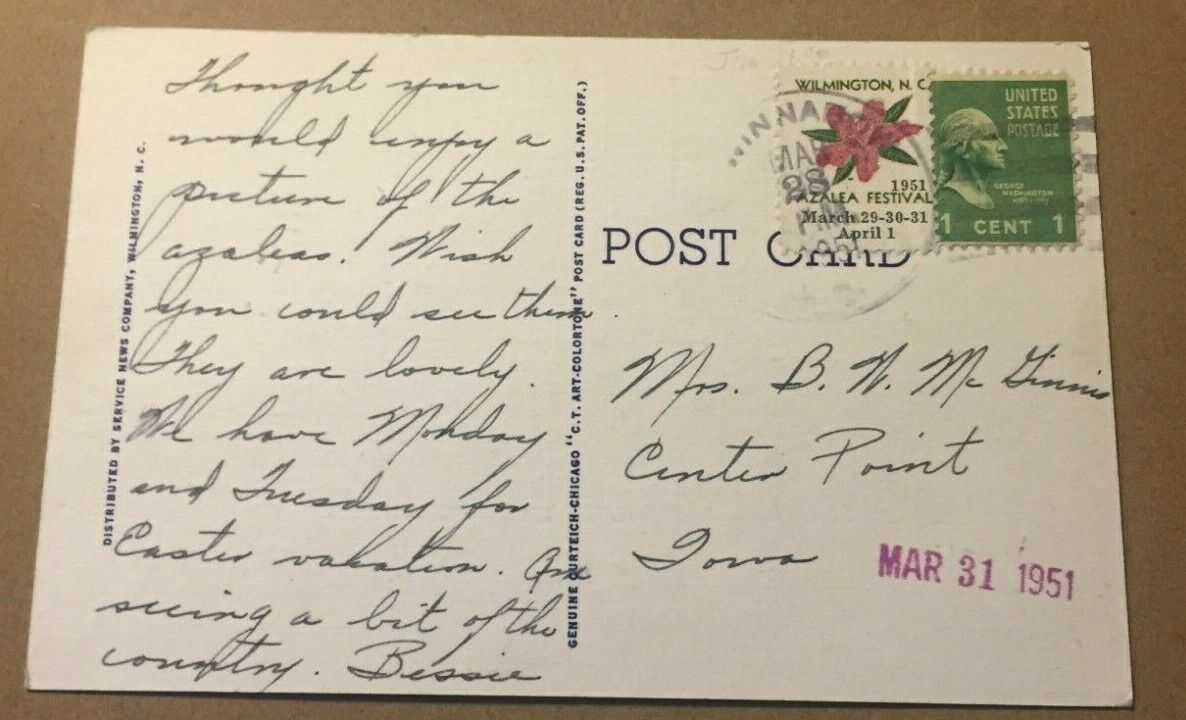 Thought you
would enjoy a
picture of the
azaleas. Wish
you could see them.
They are lovely.
We have Monday
and Tuesday for
Easter vacation. Am
seeing a bit of the
country. Bessie
DISTRIBUTED BY SERVICE NEWS COMPANY, WILMINGTON, N. C.
GENUINE CURTEICH-CHICAGO "C.T. ART-COLORTONE" POST CARD (REG. U.S. PAT. OFF.)
WILMINGTON, N. C.
1951
AZALEA FESTIVAL
March 29-30-31
April 1
UNITED
STATES
POSTAGE
GEORGE
WASHINGTON
1 CENT 1
MAR
28
PM
1951
POST CARD
Mrs. B. W. McGinnis
Center Point
Iowa
MAR 31 1951